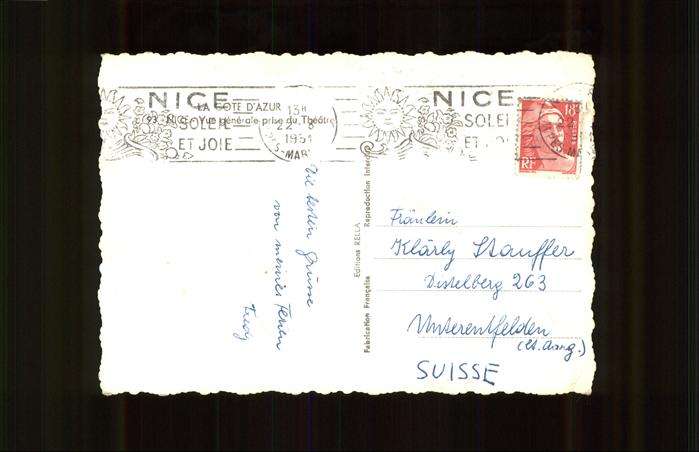 NICE
LA COTE D'AZUR
93 NICE - Vue générale prise du Théâtre
SOLEIL
ET JOIE
13H
22 - 8
1951
Die besten Grüsse
von meinen Ferien
Editions RELLA
Fabrication Française Reproduction
NICE
SOLEI
ET JO
18F
RF
Fräulein
Klärly Stauffer
Distelberg 263
Unterentfelden
SUISSE